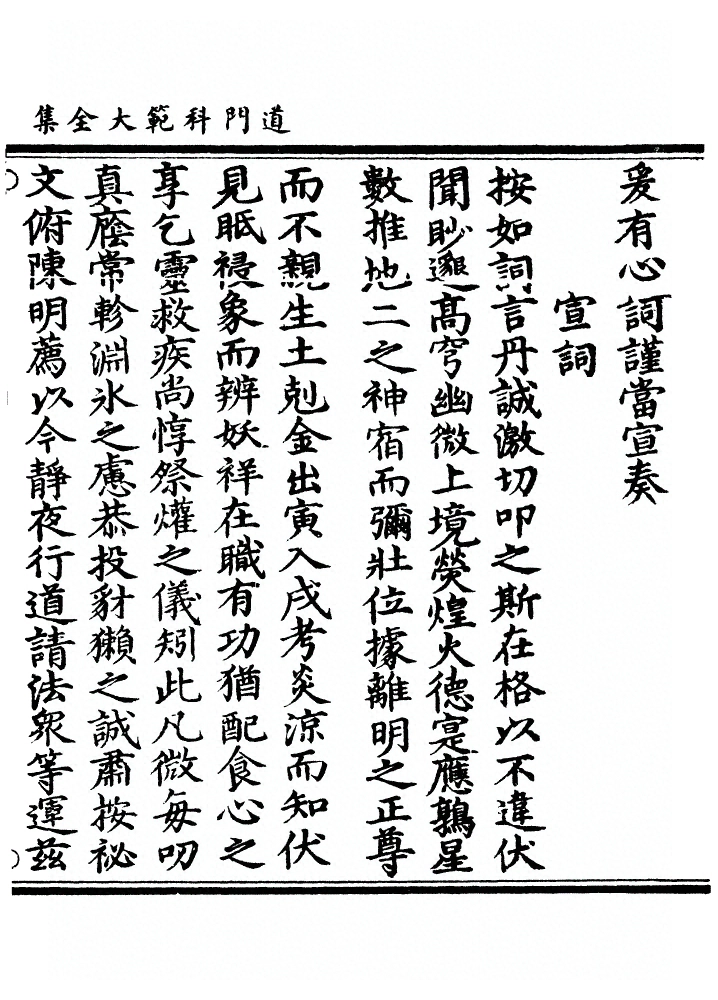 道門科範大全集
爰有心詞謹當宣奏
宣詞
按如詞言丹誠激切叩之斯在格以不違伏
聞眇邈高穹幽微上境熒煌火德寔應鶉星
數推地二之神宿而彌壯位據離明之正尊
而不親生土剋金出寅入戌考炎涼而知伏
見眂祲象而辨妖祥在職有功猶配食心之
享乞靈救疾尚惇祭爟之儀矧此凡微每叨
真廕常軫淵氷之慮恭投豺獺之誠肅按祕
文俯陳明薦以今靜夜行道請法眾等運茲